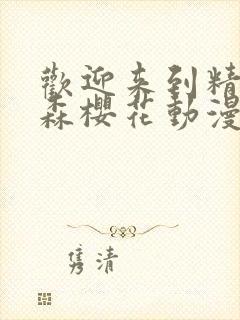 歡迎來到精
森櫻花動漫
隽清